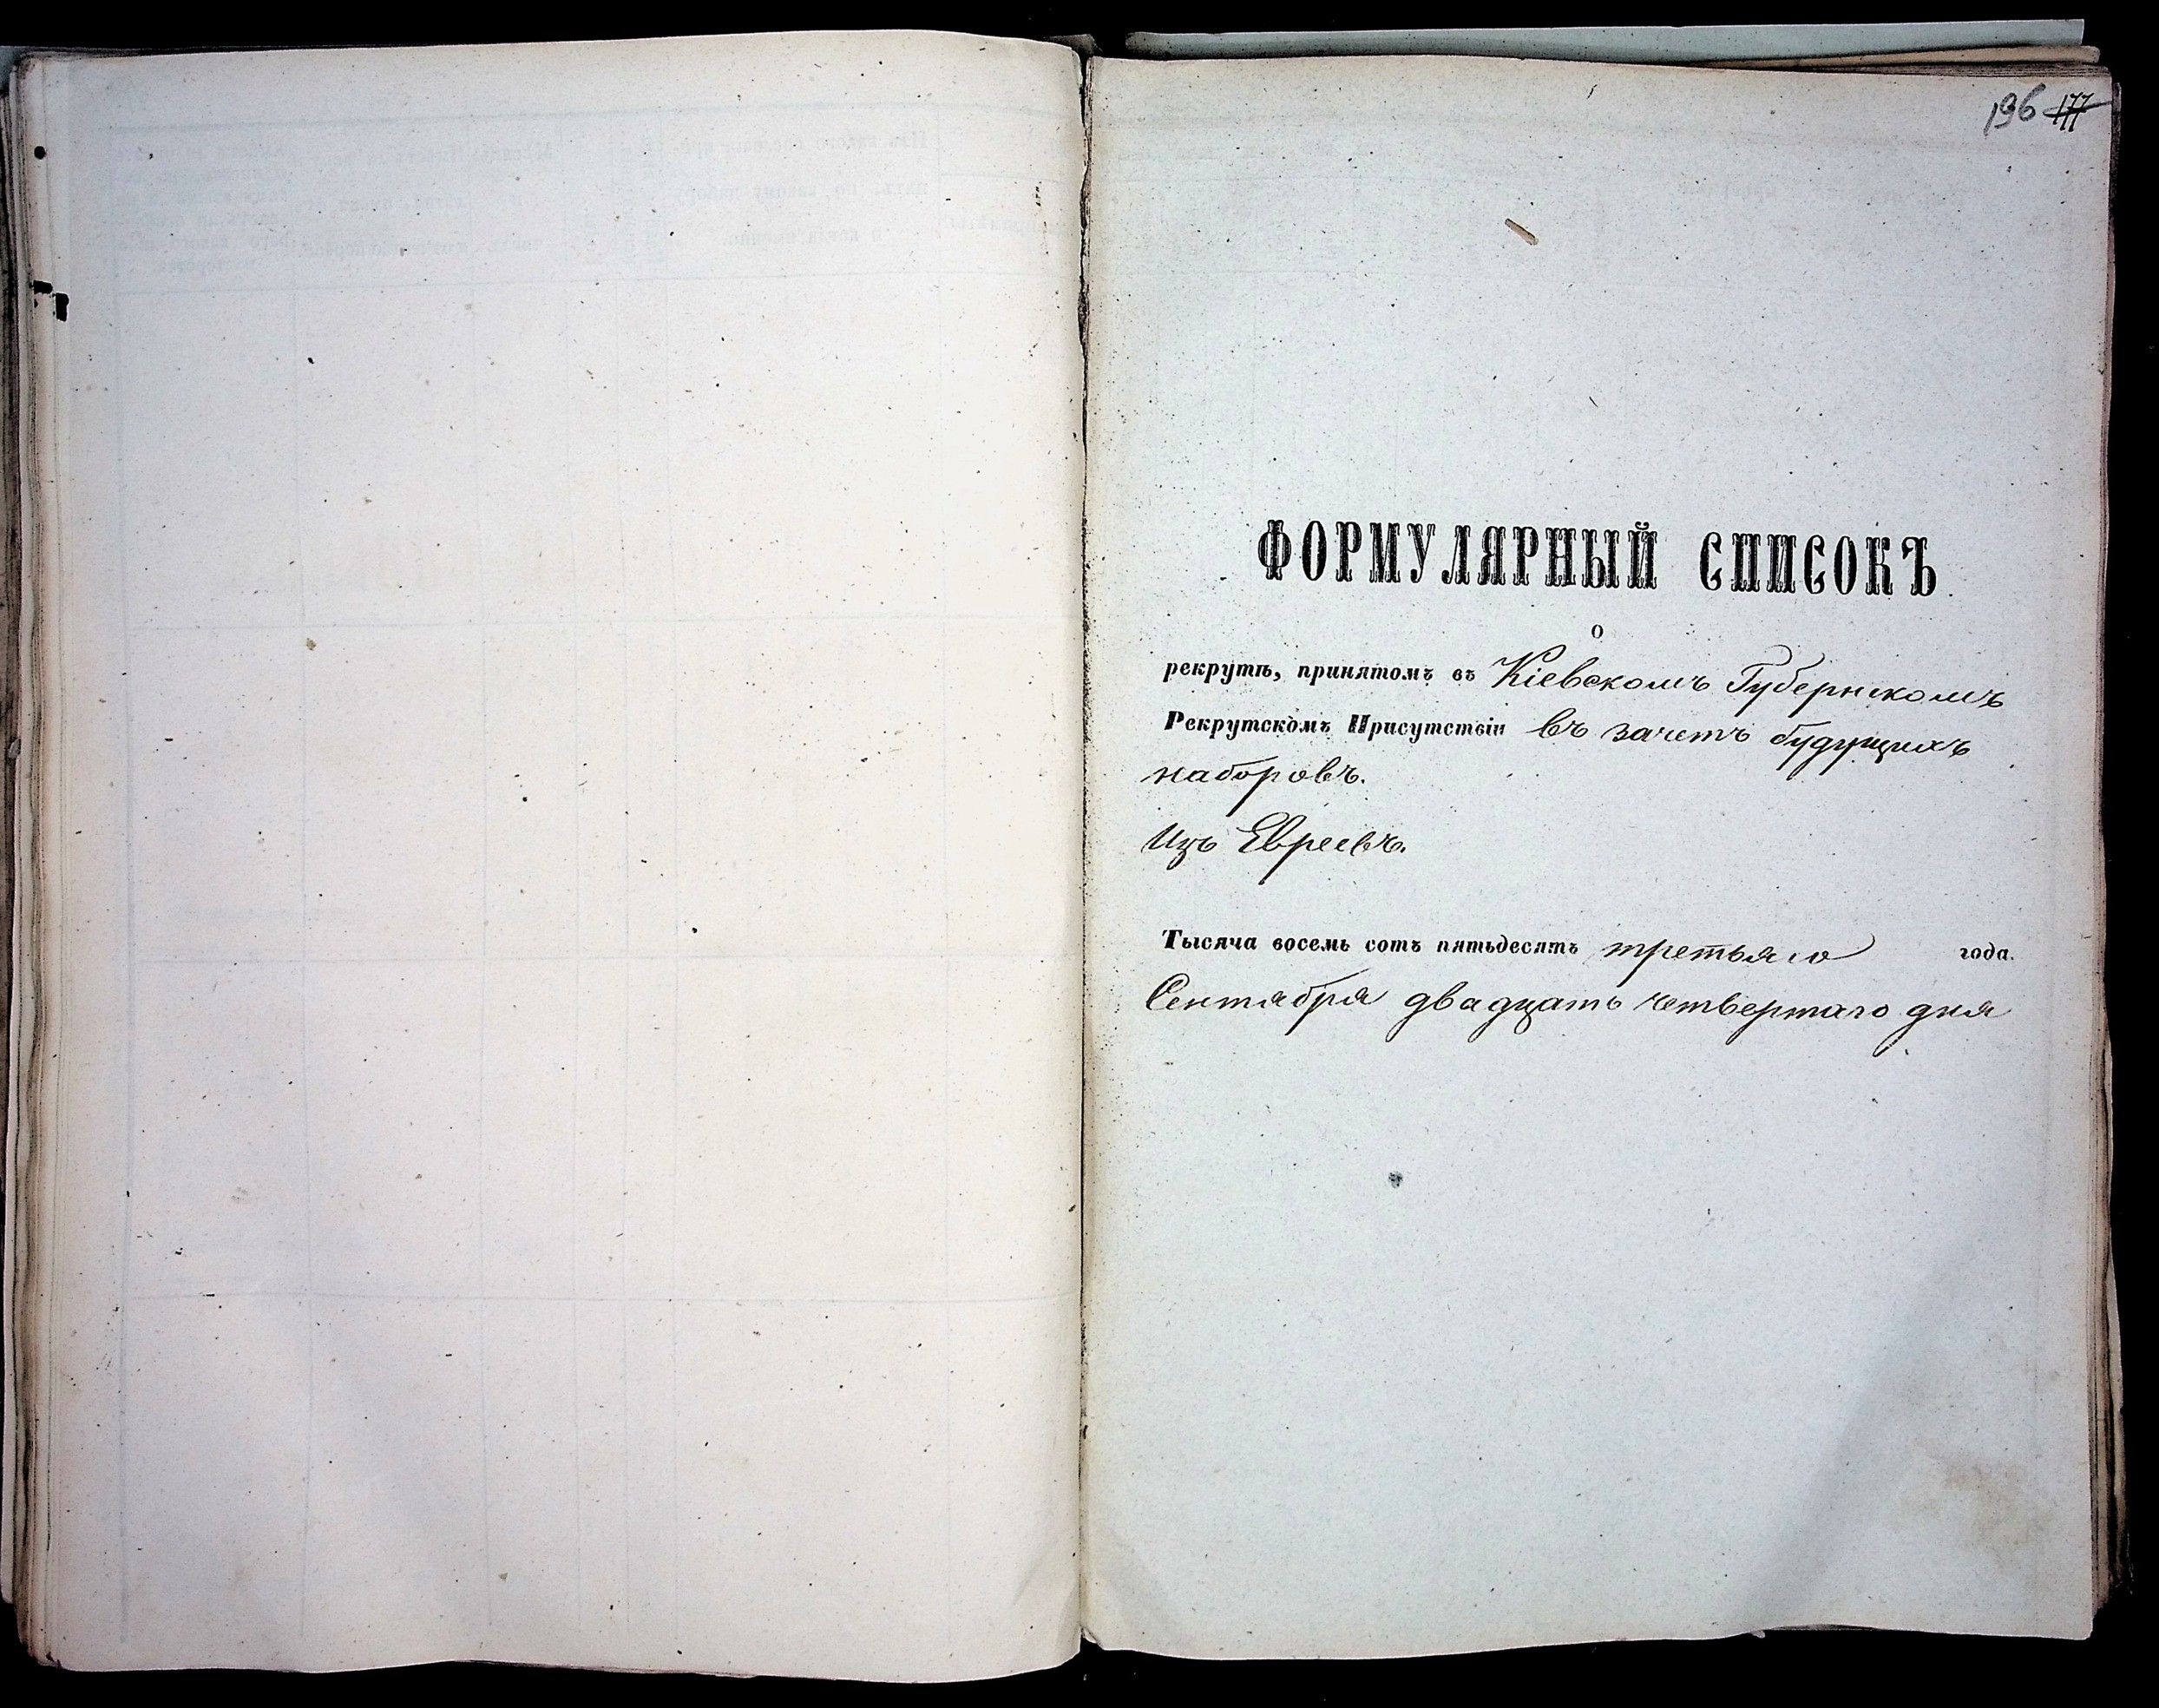 196 177
ФОРМУЛЯРНЫЙ СПИСОКЪ
о
рекрутѣ, принятомъ въ Кіевскомъ Губернскомъ
Рекрутскомъ Присутствіи въ зачетъ будущихъ
наборовъ.
Изъ Евреевъ.
Тысяча восемь сотъ пятьдесятъ третьяго года.
Сентября двадцать четвертаго дня